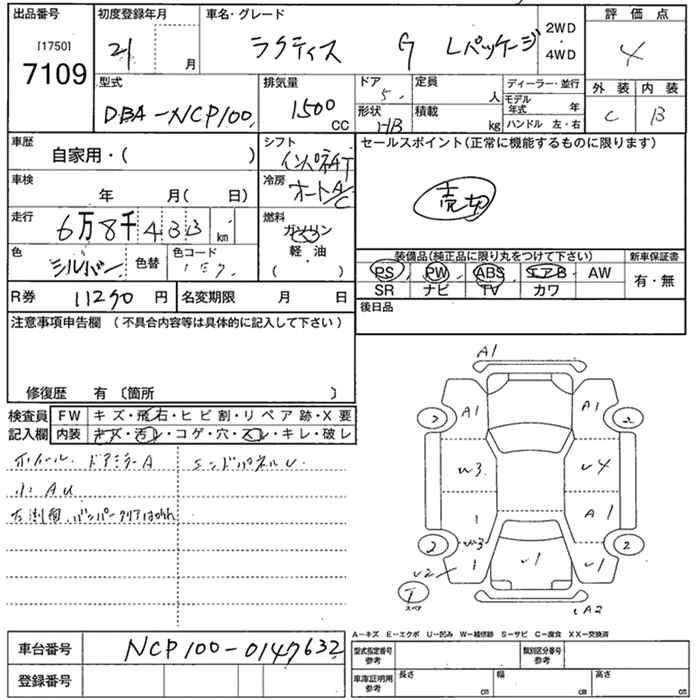 出品番号 初度登録年月 車名・グレード 2WD・4WD 評価点
[1750] 7109
21 月 ラクティス G Lパッケージ 4
型式 排気量 ドア 定員 ディーラー・並行 外装 内装
DBA-NCP100 1500 CC 5 人 モデル年式 年 C B
形状 積載 HB kg ハンドル 左・右
車歴 シフト セールスポイント(正常に機能するものに限ります)
自家用・( ) インパネAT
車検 冷房 売切
年 月( 日) オートA/C
走行 燃料
6万8千433 km ガソリン
軽・油
( )
色 色替 色コード 装備品(純正品に限り丸をつけて下さい) 新車保証書
シルバー 1E7 PS PW ABS エアB AW 有・無
SR ナビ TV カワ
R券 11290 円 名変期限 月 日 後日品
注意事項申告欄 (不具合内容等は具体的に記入して下さい)
修復歴 有 〔箇所 〕
検査員 FW キズ・飛石・ヒビ割・リペア跡・X要
記入欄 内装 キズ・汚レ・コゲ・穴・スレ・キレ・破レ
ホイール ドアミラーA エンドパネルU
小AU
左側面、バンパークリアはがれ
A1
A1 A1
2 2
W3 U4
1 A1
W3
2 2
1 U1 U1
U2
T
スペア
A2
A-キズ E-エクボ U-凹み W-補修跡 S-サビ C-腐食 XX-交換済
車台番号 NCP100-0147632
登録番号
型式指定番号 参考 類別区分番号 参考
車庫証明用 参考 長さ cm 幅 cm 高さ cm